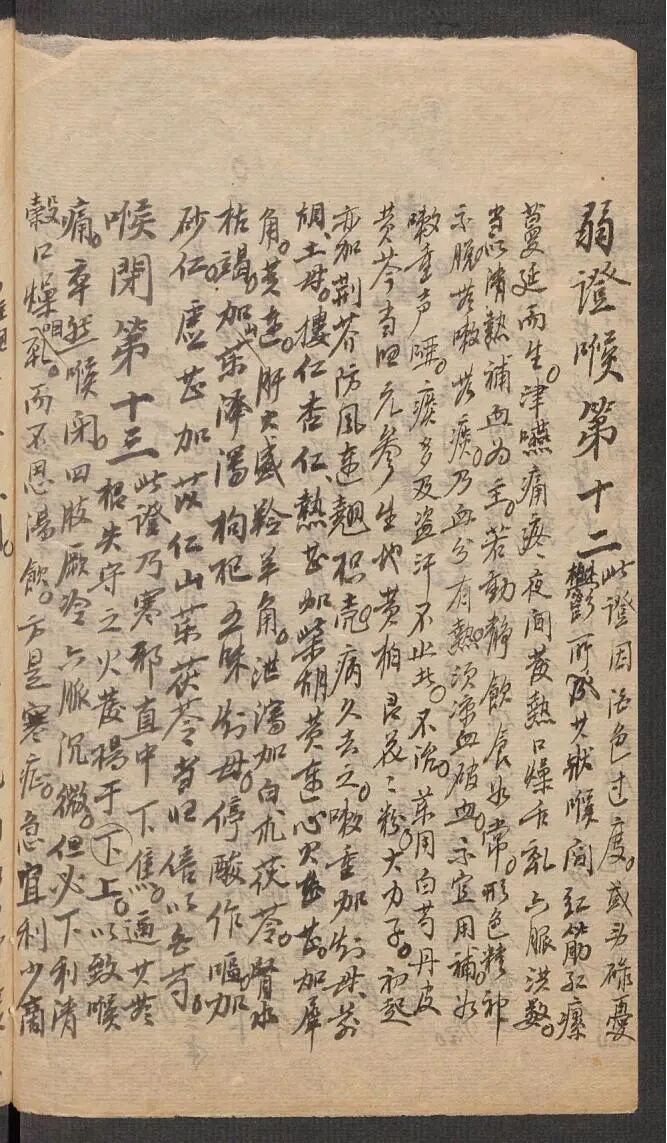 弱證喉第十二此證因酒色过度。或勞碌憂
鬱所致其狀喉间红筋红瘰
蔓延而生。津嚥痛疼夜间發熱口燥舌乾六脈洪数。
当以清熱補血为主。若動静飲食如常。形色精神
不脱若嗽若痰。乃血分有熱须凉血破血。不宜用補。如
嗽重声啞。痰多及盗汗不止此。不治。葯用白芍丹皮
黄芩当归元参生地黄柏艮花花粉。大力子。初起
亦加荆芥防风連翹枳壳。病久去之。嗽重加知母、前
胡、土母。搜仁杏仁、熱甚加柴胡黄連心火甚甚。加犀
角。黄連。肝火盛羚羊角。泄瀉加白术茯苓。腎水
枯竭。加山萸澤瀉枸杞五味知母。停酸作嘔。加
砂仁虚甚加苡仁山葯茯苓当归倍以白芍。
喉閉第十三此證乃寒邪直中下焦。逼其
相失守之火發揚于下上。以致喉
痛。卒然喉闭。四肢厥冷六脈沉微。但必下利清
穀口燥咽乾。而不思湯飲。方是寒症。急宜利少商